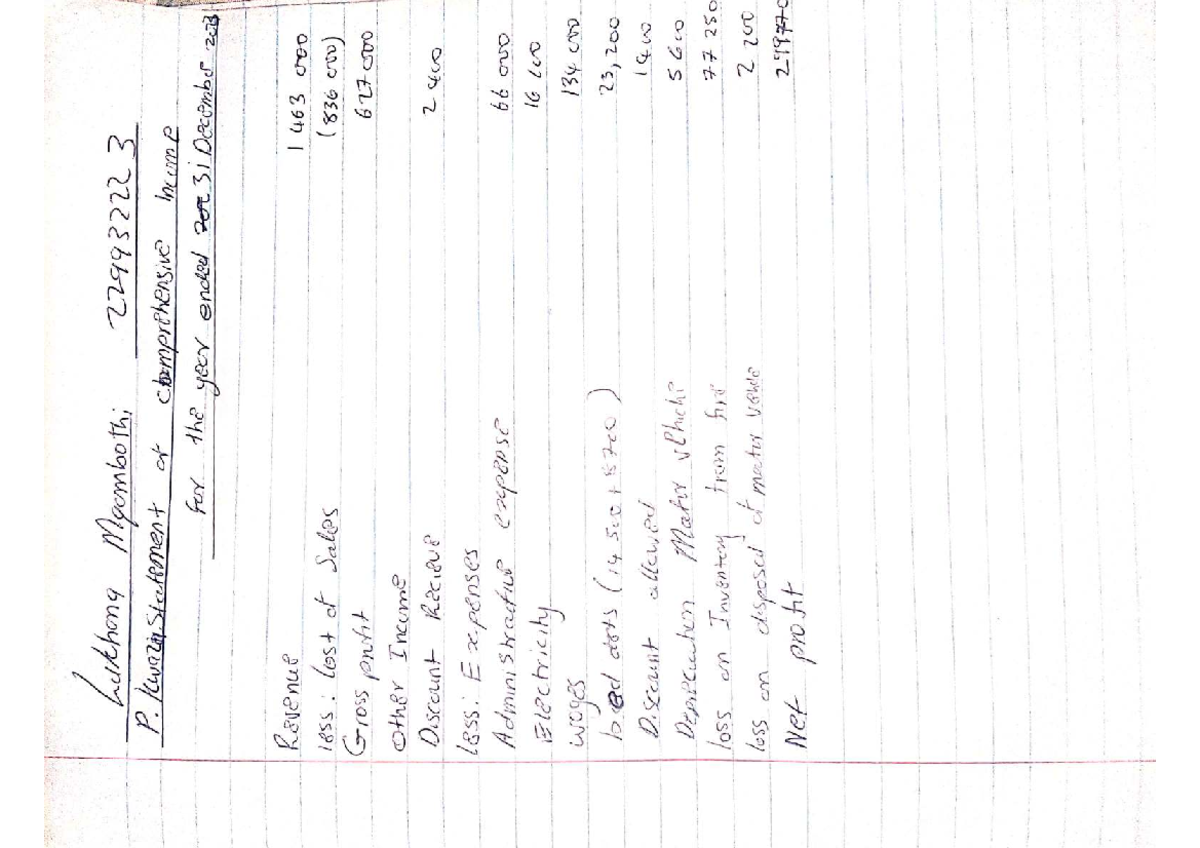 Lukhona Mqombothi 22993222 3
P. Kwazi Statement of Comprehensive Income
For the year ended 31 December 2023
Revenue 1 463 000
less: Cost of Sales (836 000)
Gross profit 627 000
Other Income
Discount Recieve 2 400
Less: Expenses
Administrative expense 66 000
Electricity 16 600
wages 134 000
bad debts (14 500 + 8700) 23,200
Discount allowed 1400
Depreciation Motor vehicle 5 600
loss on Inventory from fire 77 250
loss on disposal of motor vehicle 2 200
Net profit